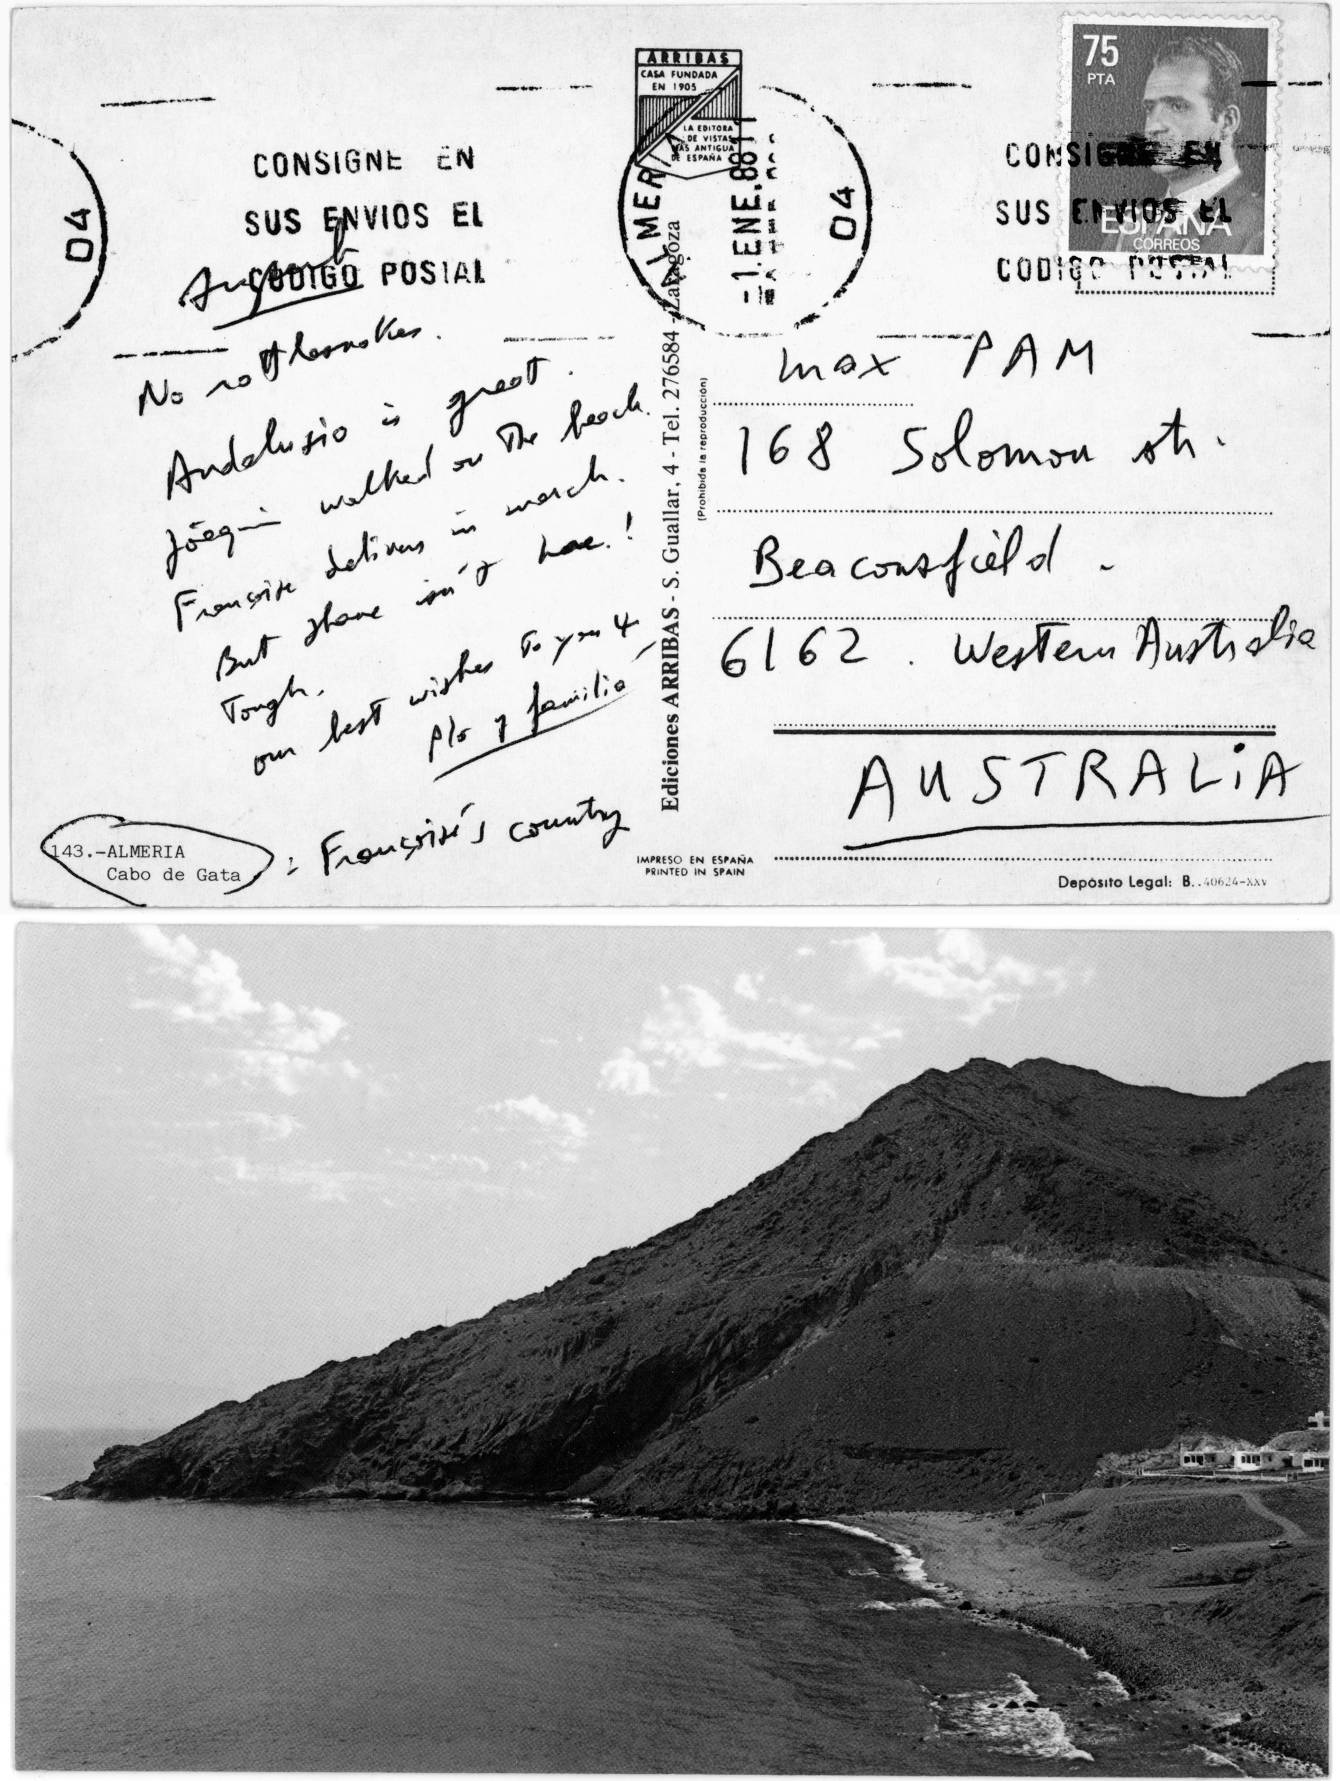 ARRIBAS
CASA FUNDADA
EN 1905
LA EDITORA
DE VISTAS
MAS ANTIGUA
DE ESPAÑA
75
PTA
ESPAÑA
CORREOS
CONSIGNE EN
SUS ENVIOS EL
CODIGO POSTAL
04
ALMERIA
-1.ENE.88 11
04
CONSIGNE EN
SUS ENVIOS EL
CODIGO POSTAL
No rattlesnakes.
Andalusia is great.
Joaquin walked on the beach.
Françoise delivers in march.
But shame isn't here!
Tough.
our best wishes to you 4
plo y familia
143.-ALMERIA
Cabo de Gata
: Françoise's country
Ediciones ARRIBAS - S. Guallar, 4 - Tel. 276584 - Zaragoza
(Prohibida la reproducción)
Max PAM
168 Solomon str.
Beaconsfield.
6162. Western Australia
AUSTRALiA
IMPRESO EN ESPAÑA
PRINTED IN SPAIN
Depósito Legal: B. 40624-XXV